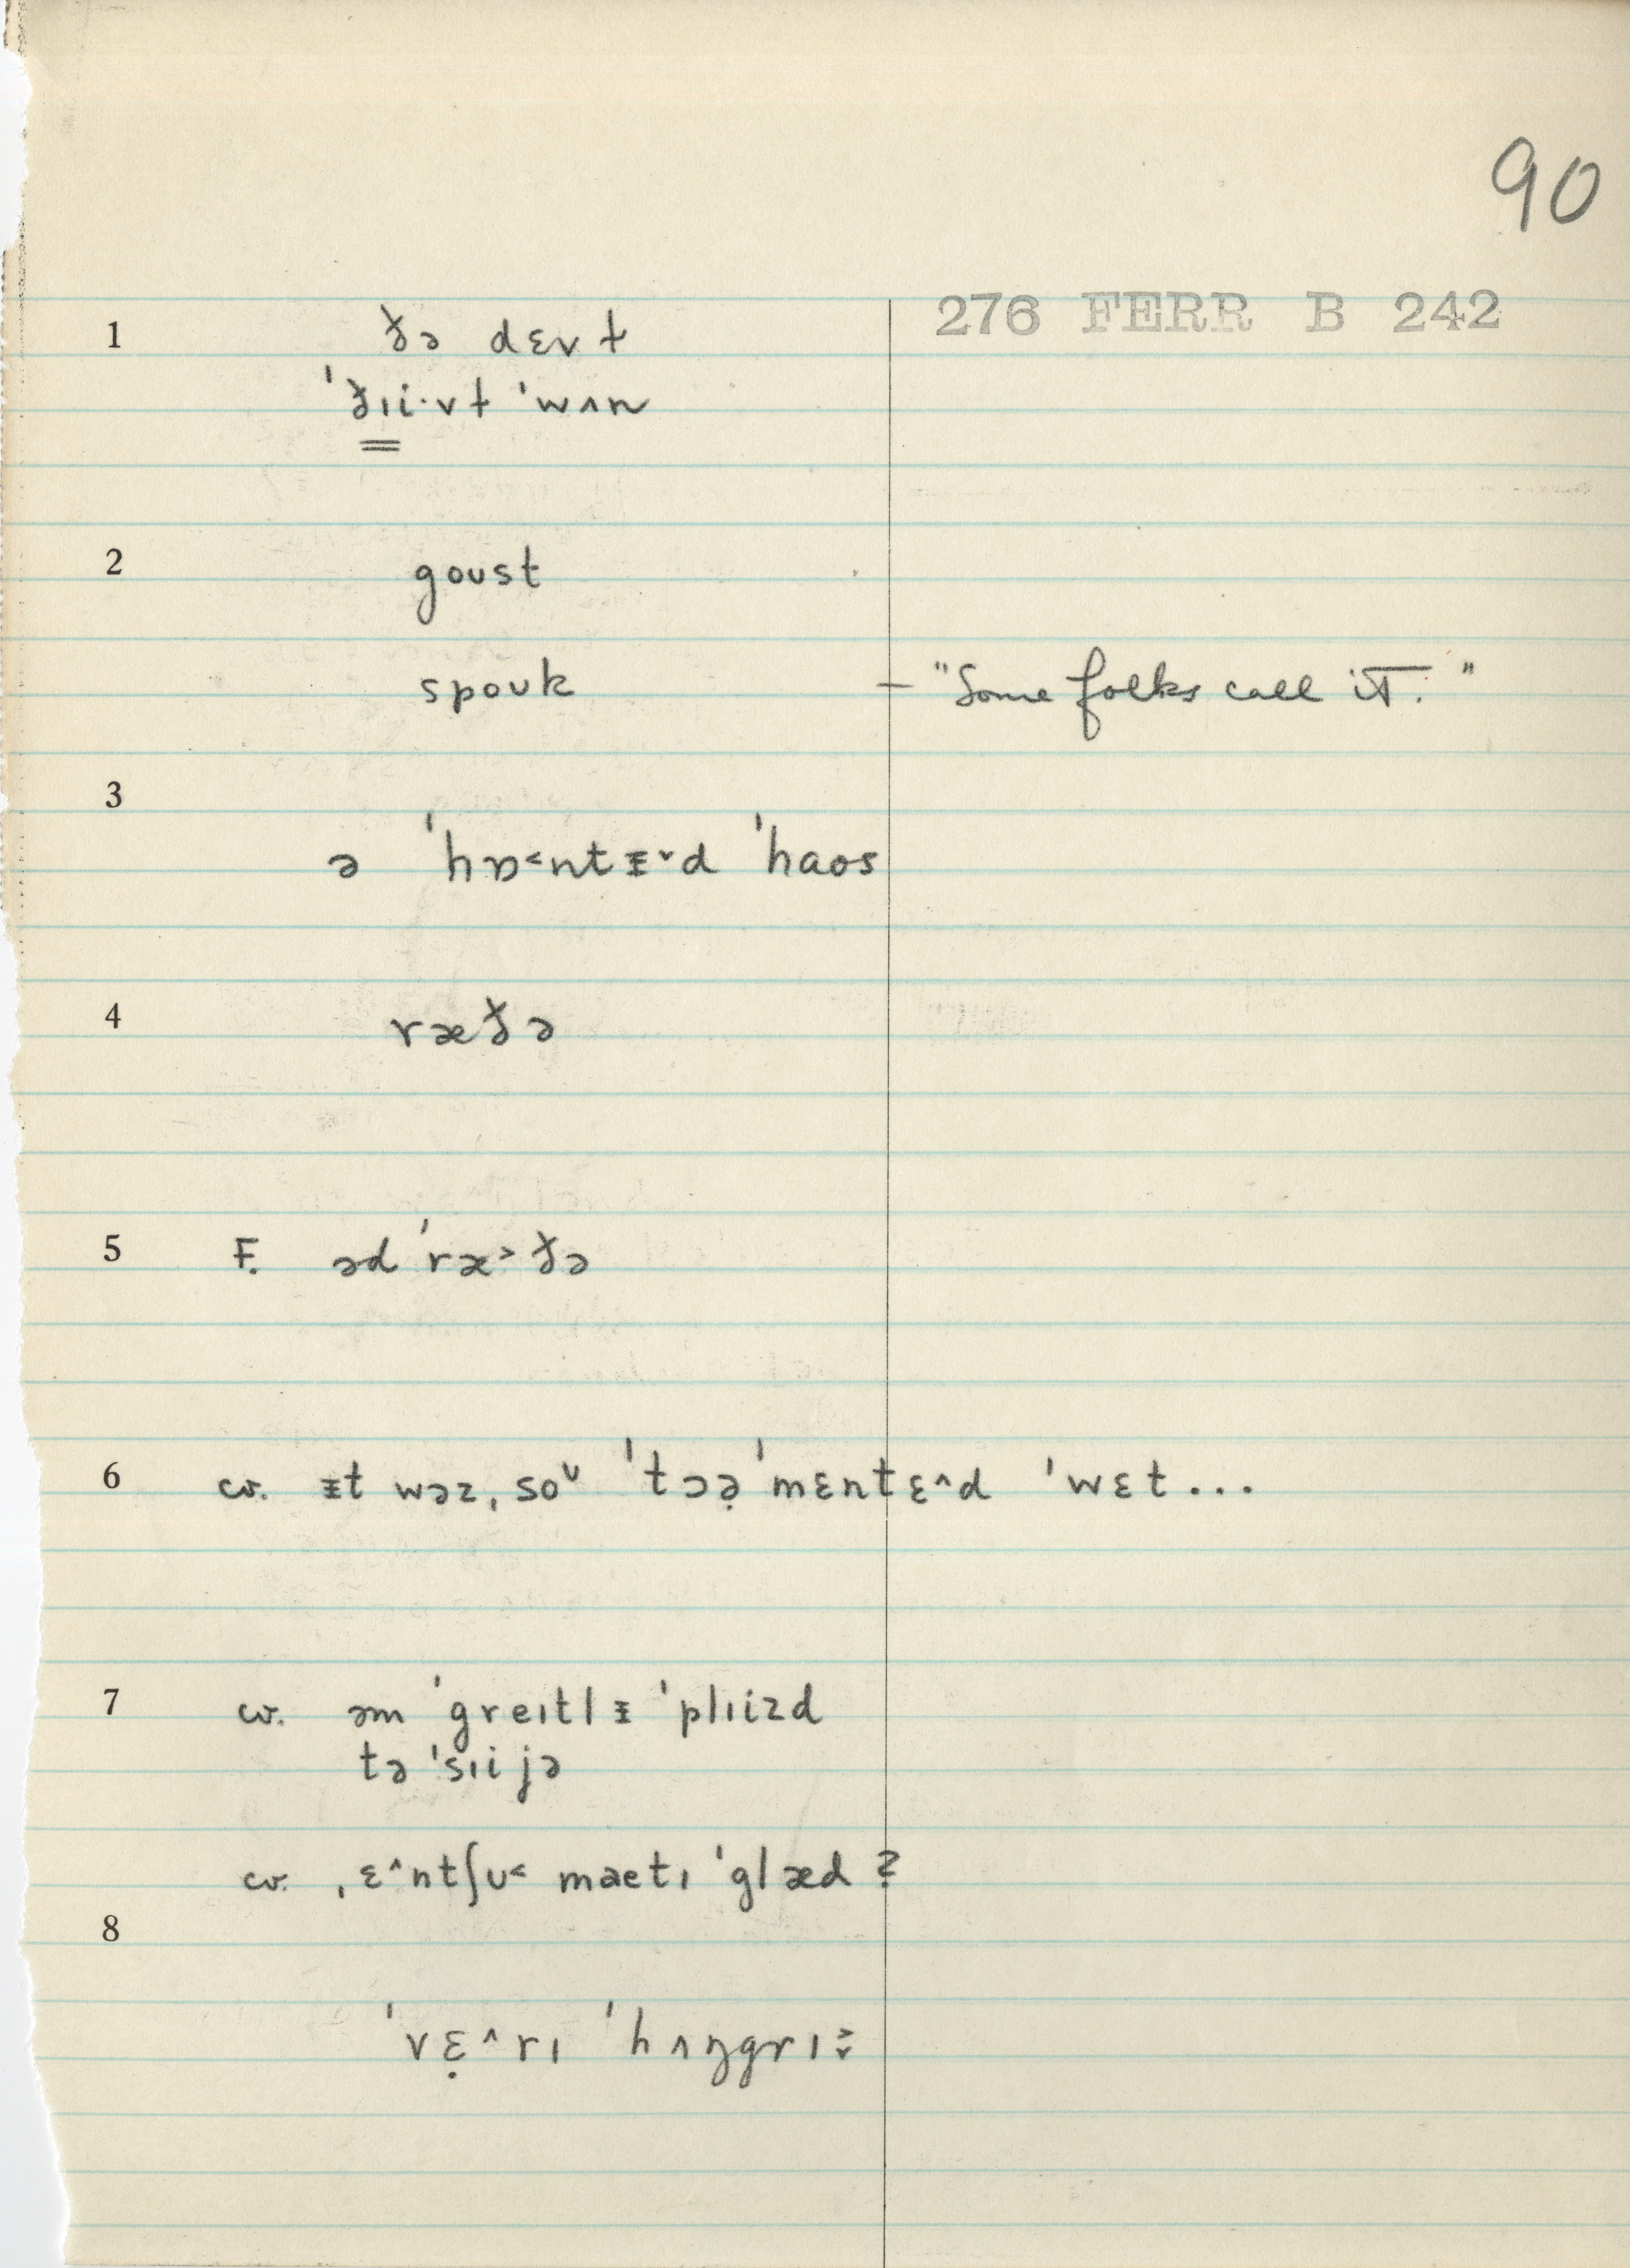 90
276 FERR B 242
1 ðə dɛvɫ
ˈðɪi·vɫ ˈwʌn
2 goust
spouk — "Some folks call it."
3 ə ˈhɒ˂ntᵻ˅d ˈhaos
4 ræðə
5 F. ədˈræ˃ðə
6 cv. ᵻt wəz, soᴜ ˈtɔə̣ˈmɛntɛ˄d ˈwɛt...
7 cv. əm ˈgreɪtlᵻ ˈplɪizd
tə ˈsɪi jə
cv. ˌɛ˄ntʃu˂ maetɪ ˈglæd ?
8
ˈvɛ̣˄rɪ ˈhʌŋgrɪ˃˅